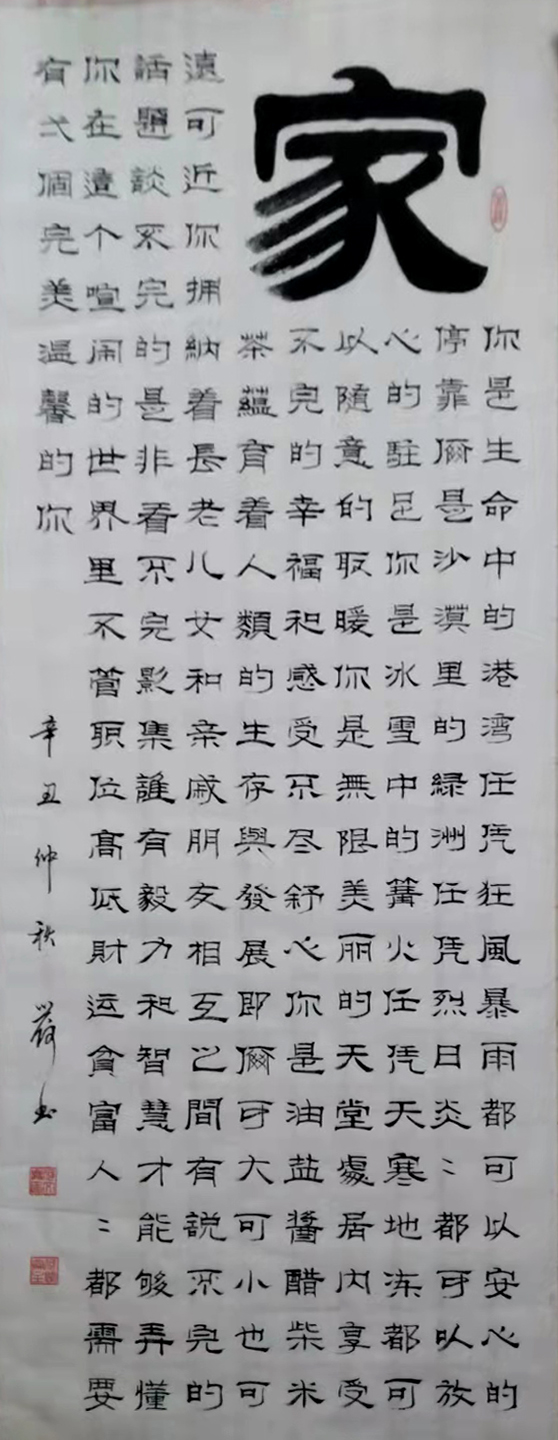 家
你是生命中的港湾任凭狂風暴雨都可以安心的
停靠儞是沙漠里的緑洲任凭烈日炎〻都可以放
心的駐足你是冰雪中的篝火任凭天寒地冻都可
以随意的取暖你是無限美丽的天堂處居内享受
不完的幸福和感受不尽舒心你是油盐醬醋柴米
茶蘊育着人類的生存與發展即儞可大可小也可
遠可近你拥納着長老儿女和亲戚朋友相互之間有説不完的
話題談不完的是非看不完影集誰有毅力和智慧才能够弄懂
你在這个喧闹的世界里不管职位高低財运貧富人〻都需要
有弍個完美温馨的你
辛丑仲秋 书